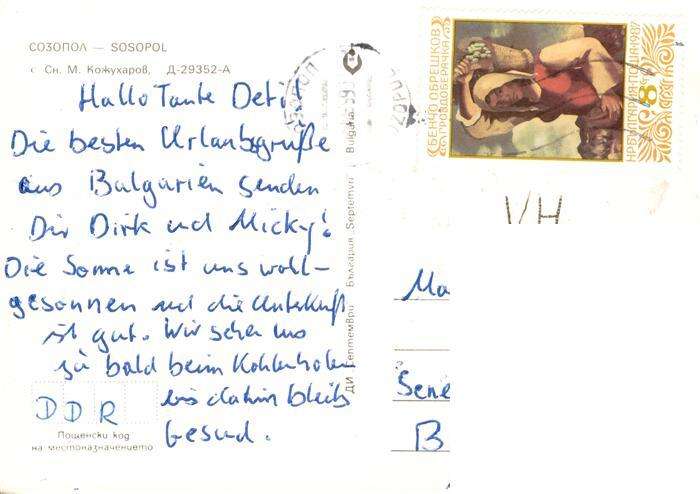 СОЗОПОЛ — SOSOPOL
Сн. М. Кожухаров, Д-29352-А
Hallo Tante Deti!
Die besten Urlaubsgrüße
aus Bulgarien senden
Dir Dirk und Micky!
Die Sonne ist uns wohl-
gesonnen und die Unterkunft
ist gut. Wir sehen uns
ja bald beim Kohlenholen
bis dahin bleib
Gesund.
DDR
Пощенски код
на местоназначението
ДИ Септември България "Septemvri" Bulgaria
БЕНЧО ОБРЕШКОВ
ГРОЗДОБЕРАЧКА
НР БЪЛГАРИЯ ПОЩА 1987
8
VH
Ma
Sene
B